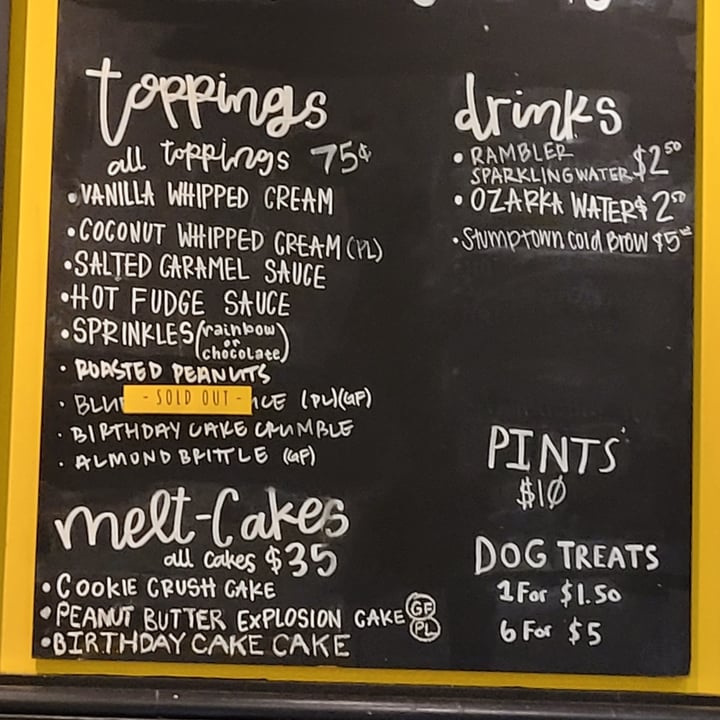 toppings
all toppings 75¢
• VANILLA WHIPPED CREAM
• COCONUT WHIPPED CREAM (PL)
• SALTED CARAMEL SAUCE
• HOT FUDGE SAUCE
• SPRINKLES (rainbow
or
chocolate)
• ROASTED PEANUTS
- SOLD OUT -
(PL)(GF)
• BIRTHDAY CAKE CRUMBLE
• ALMOND BRITTLE (GF)
melt-Cakes
all cakes $35
• COOKIE CRUSH CAKE
• PEANUT BUTTER EXPLOSION CAKE GF
PL
• BIRTHDAY CAKE CAKE
drinks
• RAMBLER
SPARKLING WATER $2⁵⁰
• OZARKA WATER $2⁵⁰
• Stumptown Cold Brow $5⁰⁰
PINTS
$10
DOG TREATS
1 For $1.50
6 For $5